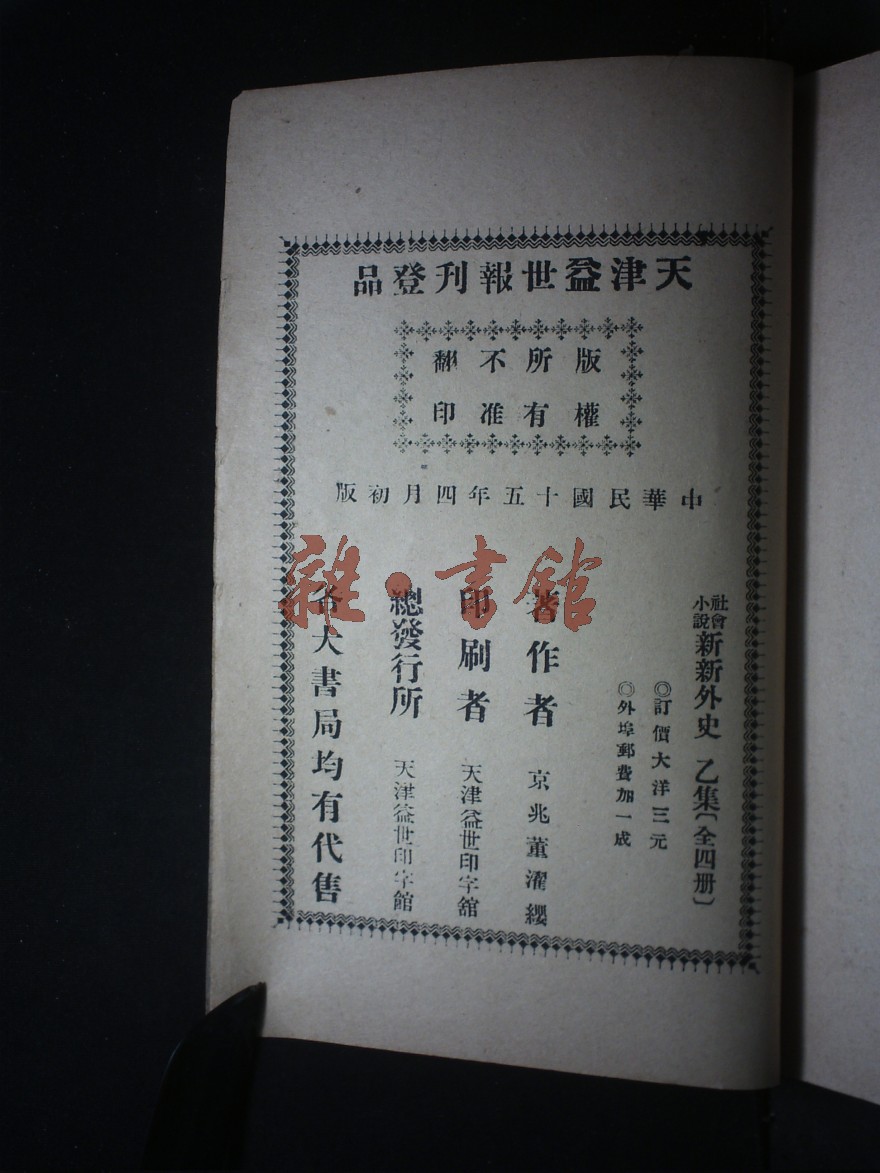 天津益世報刊登品
版權
所有
不准
翻印
中華民國十五年四月初版
社會小說 新新外史 乙集〔全四册〕
◎訂價大洋三元
◎外埠郵費加一成
著作者 京兆董濯纓
印刷者 天津益世印字舘
總發行所 天津益世印字館
各大書局均有代售
雜·書館